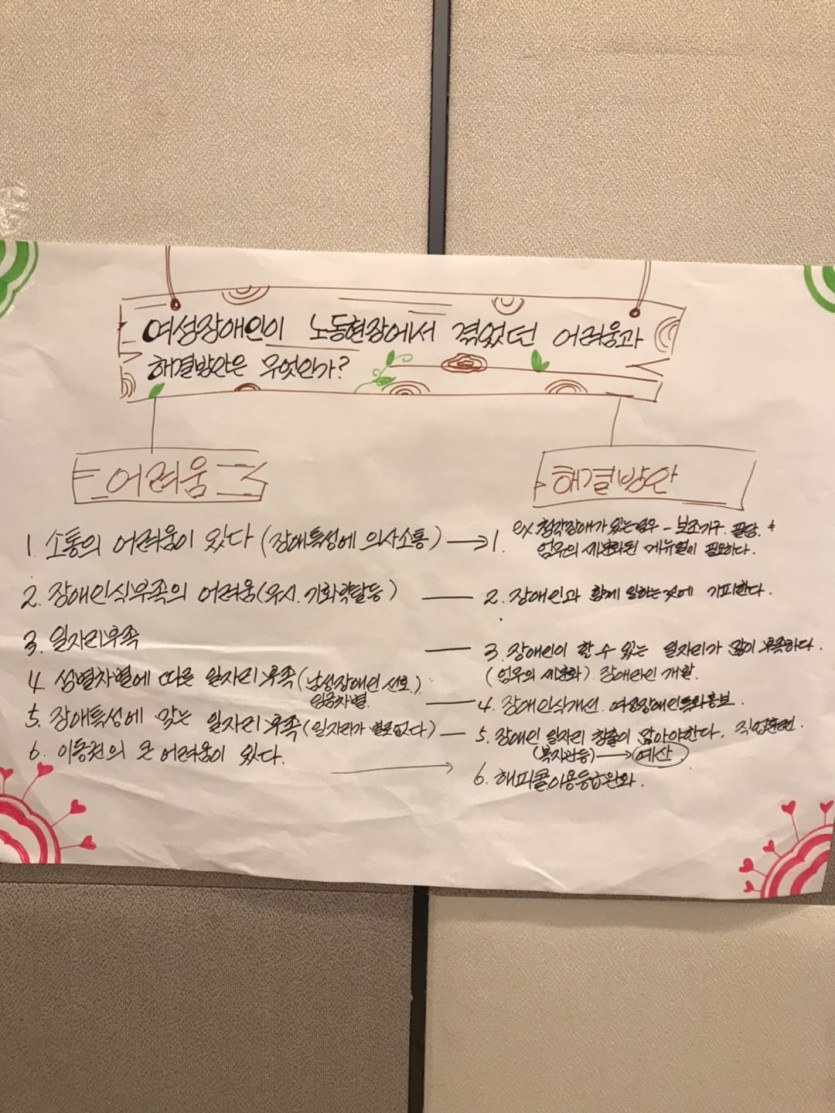 여성장애인이 노동현장에서 겪었던 어려움과
해결방안은 무엇인가?
어려움
1. 소통의 어려움이 있다 (장애특성에 의사소통)
2. 장애인식부족의 어려움(무시. 기회박탈등)
3. 일자리부족
4. 성별차별에 따른 일자리부족(남성장애인 선호)
임금차별
5. 장애특성에 맞는 일자리부족(일자리가 별로없다)
6. 이동권의 큰 어려움이 있다.
해결방안
1. ex 청각장애가 있는경우 - 보조기구. 필담. +
업무의 세분화된 메뉴얼이 필요하다.
2. 장애인과 함께 일하는것에 기피한다.
3. 장애인이 할 수 있는 일자리가 많이 부족하다.
(업무의 세분화) 장애라인 개발.
4. 장애인식개선. 여성장애인특화홍보
5. 장애인 일자리 창출이 많아야한다. 직업훈련
(복지관등) → 예산
6. 해피콜이용등급완화.